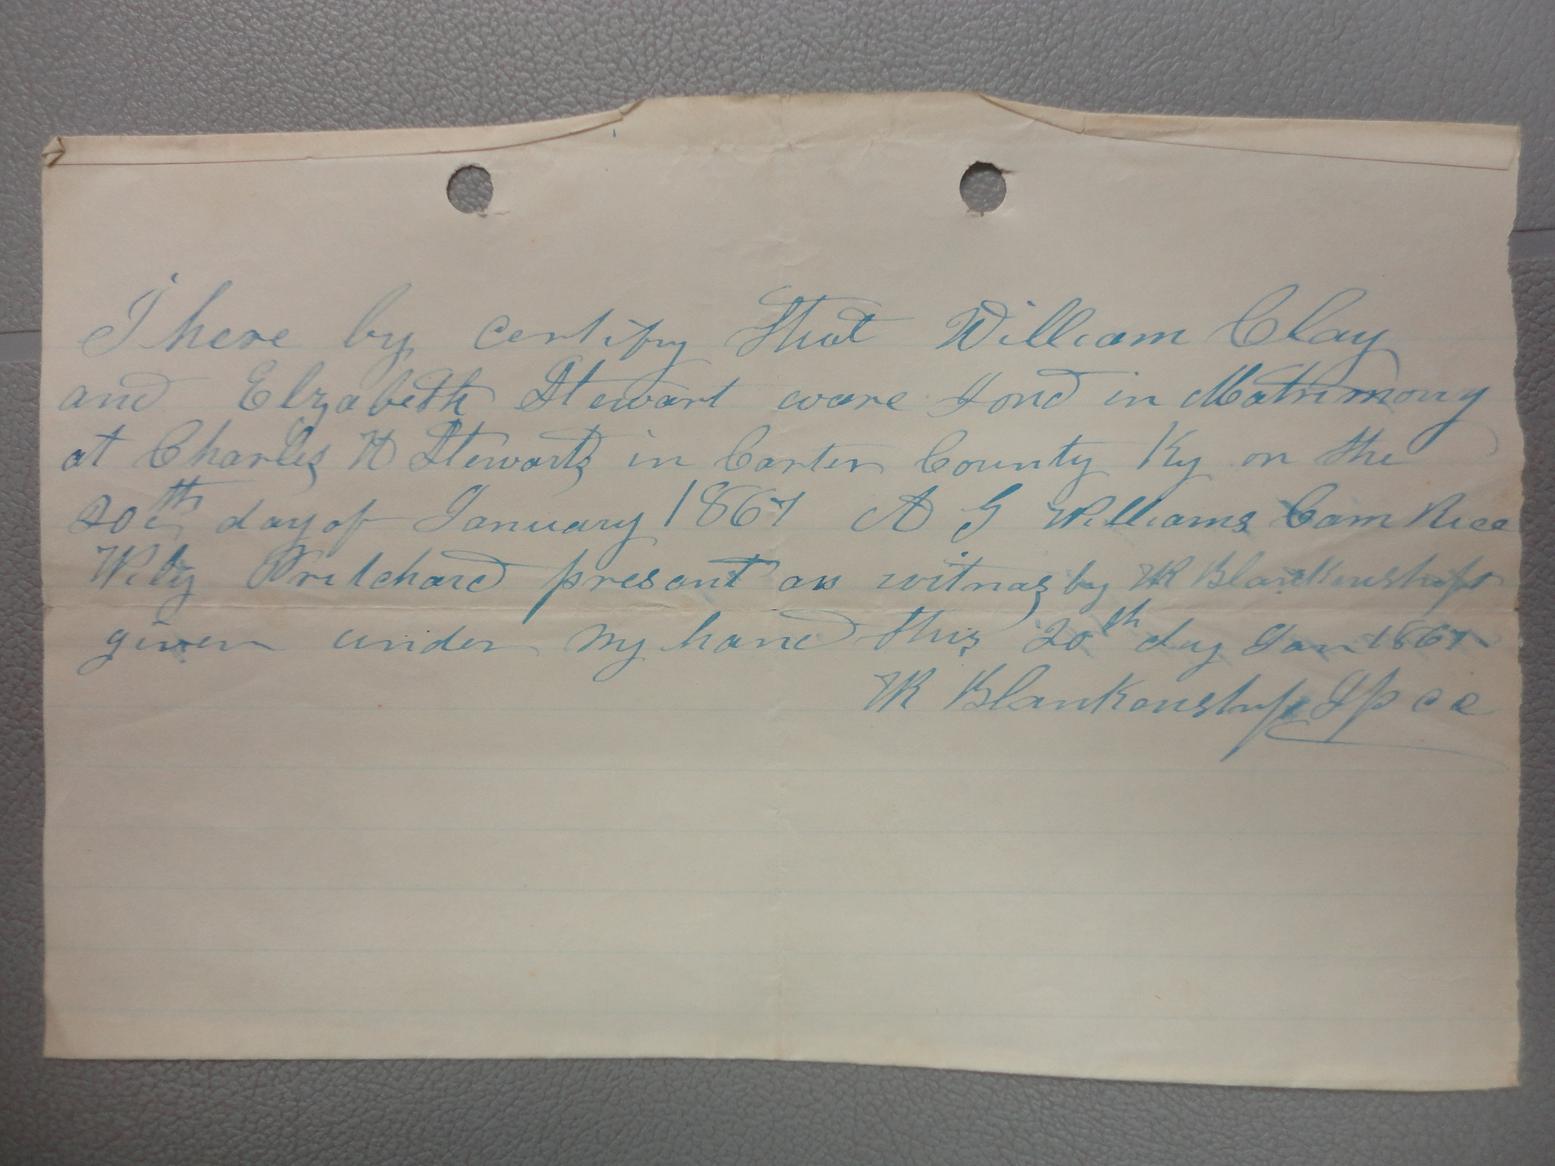 I here by certify that William Clay
and Elzabeth Stewart ware Jond in Matrimony
at Charles H Stewarts in Carter County Ky on the
20th day of January 1867 A G Williams Cam Rice
Wiley Pritchard present as witnas by W R Blankenship
given under my hand this 20th day Jan 1867
W R Blankenship J p c c